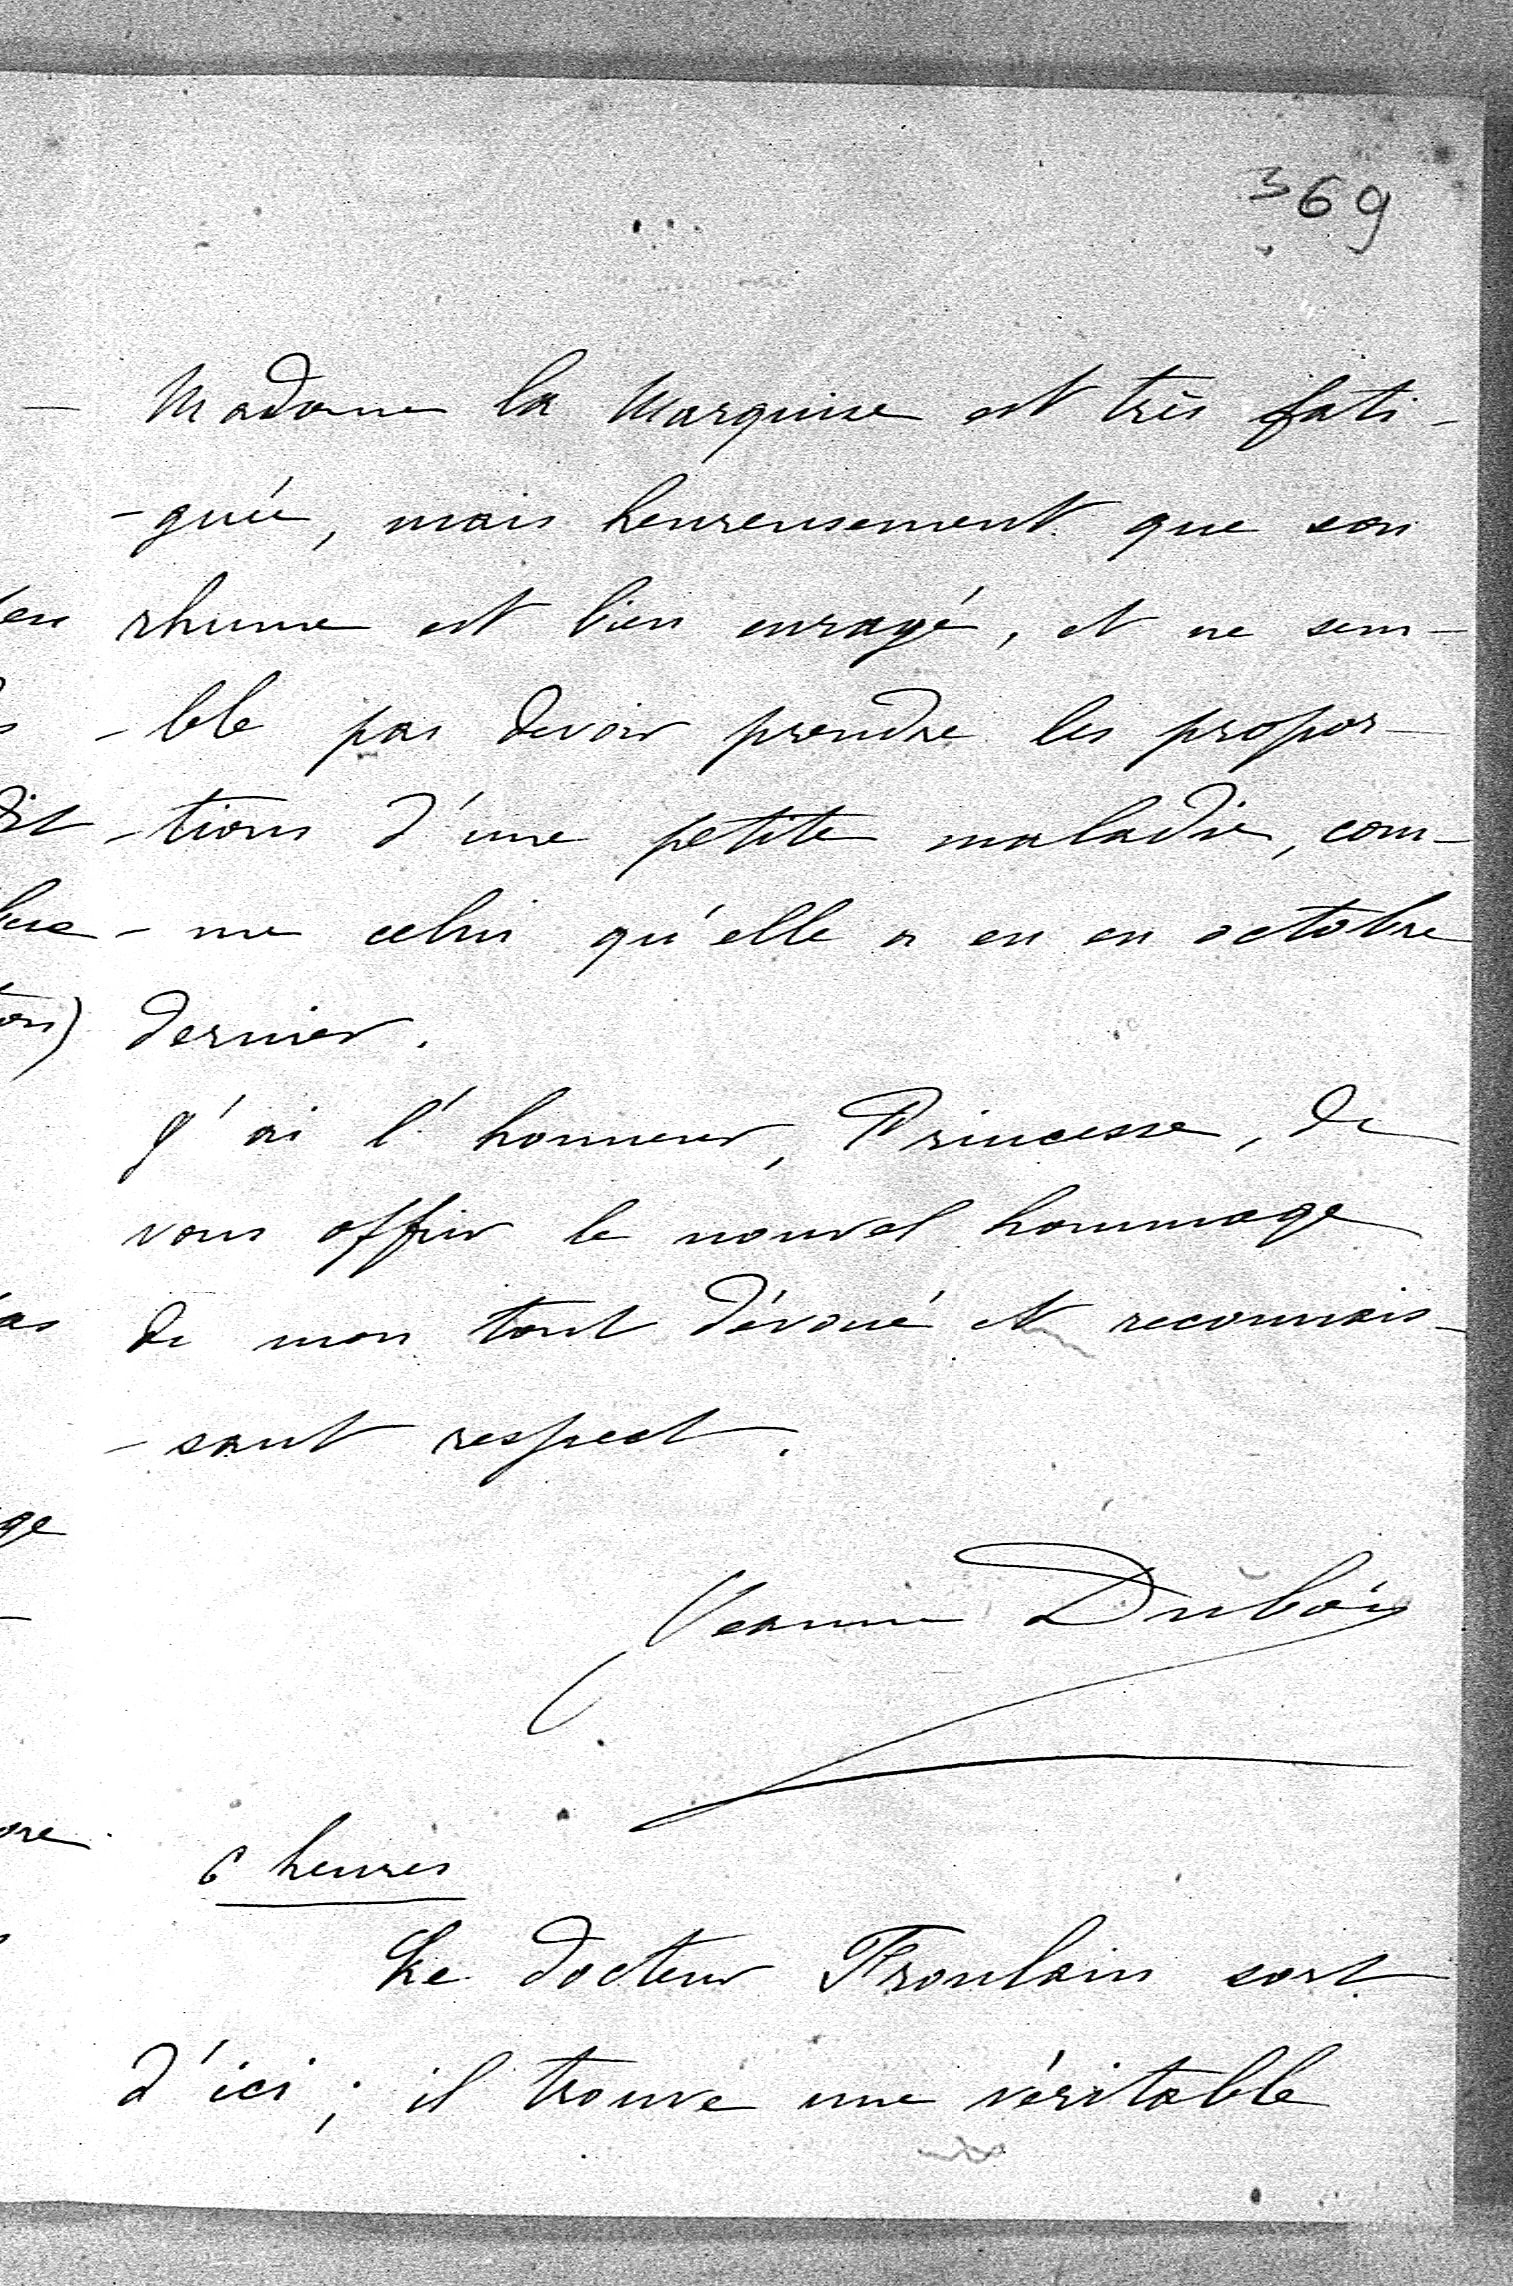 369
Madame la Marquise est très fati-
-guée, mais heureusement que son
rhume est bien enrayé, et ne sem-
-ble pas devoir prendre les propor-
-tions d'une petite maladie, com-
-me celui qu'elle a eu en octobre
dernier.
J'ai l'honneur, Princesse, de
vous offrir le nouvel hommage
de mon tout dévoué et reconnais-
-sant respect.
Jeanne Dubois
6 heures
Le docteur sort
d'ici ; il trouve une véritable